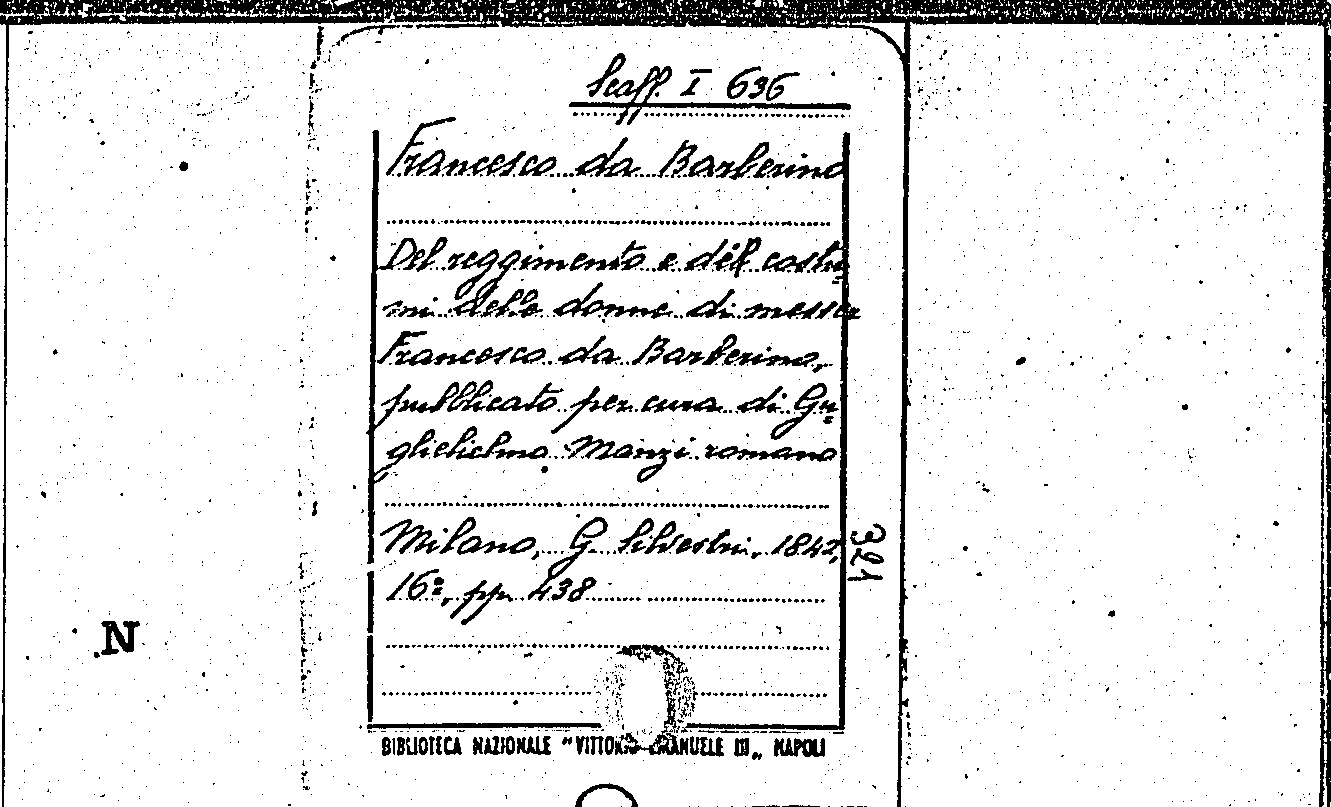 Scaff. I 636
Francesco da Barberino
Del reggimento e del costu=
mi delle donne di messer
Francesco da Barberino,
pubblicato per cura di Gu=
glielielmo Manzi romano
Milano, G. Silvestri, 1842,
16º, pp. 438
321
N
BIBLIOTECA NAZIONALE "VITTORIO EMANUELE III„ NAPOLI